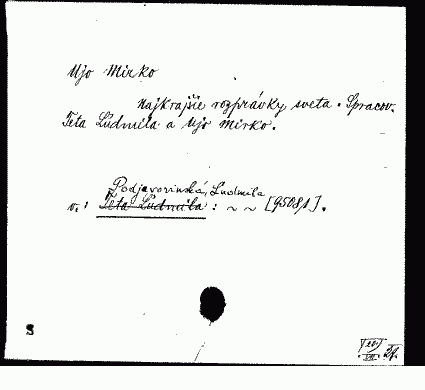 Ujo Mirko
Najkrajšie rozprávky sveta. Spracov.
Teta Ľudmila a Ujo Mirko.
Podjavorinská, Ludmila
v.: Teta Ľudmila : ~ ~ [9508/1].
S